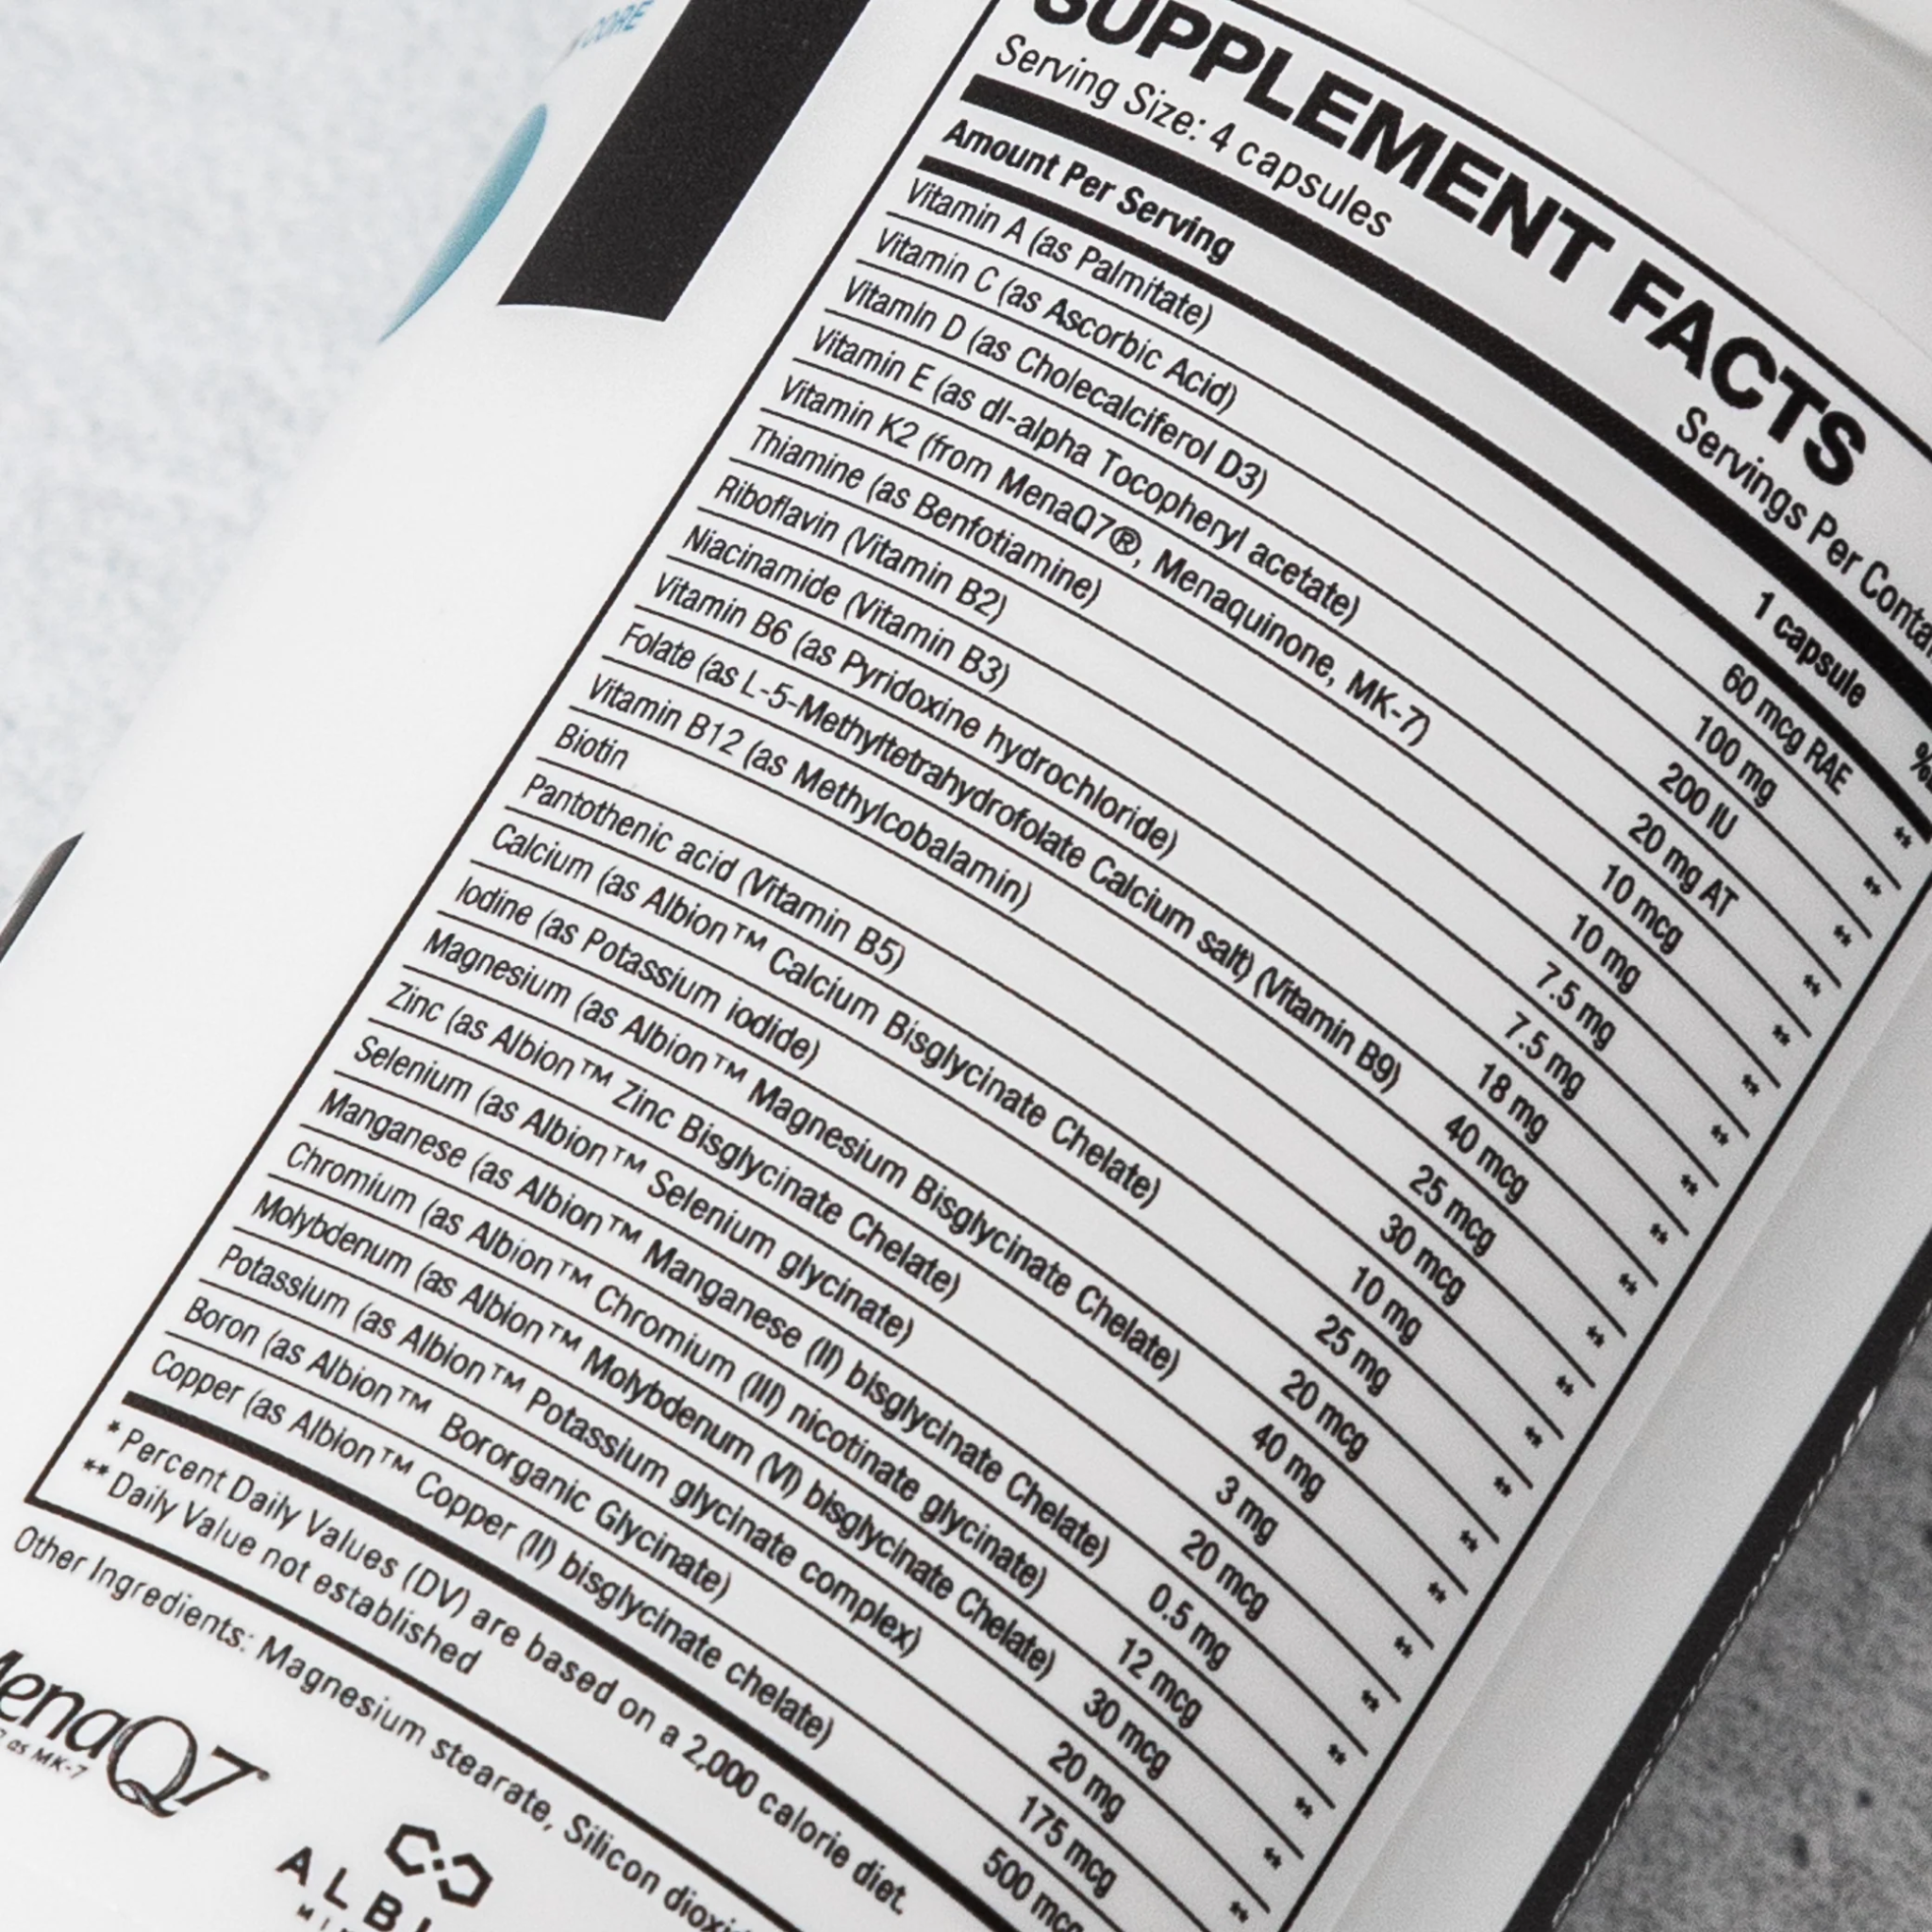 CORE
SUPPLEMENT FACTS
Serving Size: 4 capsules Servings Per
Amount Per Serving 1 capsule %
Vitamin A (as Palmitate) 60 mcg RAE **
Vitamin C (as Ascorbic Acid) 100 mg **
VitamIn D (as Cholecalciferol D3) 200 IU **
Vitamin E (as dl-alpha Tocopheryl acetate) 20 mg AT **
Vitamin K2 (from MenaQ7®, Menaquinone, MK-7) 10 mcg **
Thiamine (as Benfotiamine) 10 mg **
Riboflavin (Vitamin B2) 7.5 mg **
Niacinamide (Vitamin B3) 7.5 mg **
Vitamin B6 (as Pyridoxine hydrochloride) 18 mg **
Folate (as L-5-Methyltetrahydrofolate Calcium salt) (Vitamin B9) 40 mcg **
Vitamin B12 (as Methylcobalamin) 25 mcg **
Biotin 30 mcg **
Pantothenic acid (Vitamin B5) 10 mg **
Calcium (as Albion™ Calcium Bisglycinate Chelate) 25 mg **
Iodine (as Potassium iodide) 20 mcg **
Magnesium (as Albion™ Magnesium Bisglycinate Chelate) 40 mg **
Zinc (as Albion™ Zinc Bisglycinate Chelate) 3 mg **
Selenium (as Albion™ Selenium glycinate) 20 mcg **
Manganese (as Albion™ Manganese (II) bisglycinate Chelate) 0.5 mg **
Chromium (as Albion™ Chromium (III) nicotinate glycinate) 12 mcg **
Molybdenum (as Albion™ Molybdenum (VI) bisglycinate Chelate) 30 mcg **
Potassium (as Albion™ Potassium glycinate complex) 20 mg **
Boron (as Albion™ Bororganic Glycinate) 175 mcg **
Copper (as Albion™ Copper (II) bisglycinate chelate) 500 mcg
* Percent Daily Values (DV) are based on a 2,000 calorie diet.
** Daily Value not established
Other Ingredients: Magnesium stearate, Silicon
MenaQ7
as MK-7